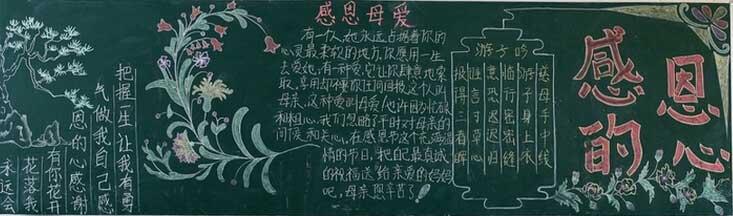 把握一生让我有勇
气做我自己感
恩的心感谢
有你花开
花落我
永远会
感恩母爱
有一个人,她永远占据着你的
心灵最柔软的地方,你愿用一生
去爱她,有一种爱,它让你肆意地索
取、享用却不要你任何回报,这个人叫
母亲,这种爱叫母爱!也许因为忙碌
和粗心,我们忽略了平时对母亲的
问候和关心,在感恩节这个充满温
情的节日,把最真诚
的祝福送给亲爱的妈妈
吧,母亲您辛苦了!
游子吟
慈母手中线
游子身上衣
临行密密缝
意恐迟迟归
谁言寸草心
报得三春晖
感恩
的心